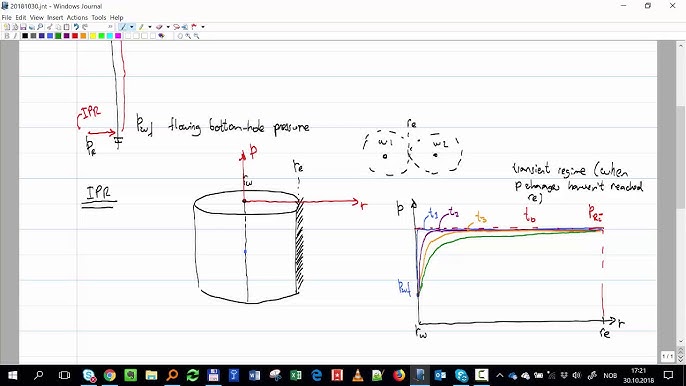 20181030.jnt - Windows Journal
File Edit View Insert Actions Tools Help
IPR
PR
Pwf flowing bottom-hole pressure
re
w1 w2
P
re
rw
transient regime (when
p changes haven't reached
re)
IPR
r
p
t1 t2 t3 to PRi
Pwf
rw re r
1 / 1
NOB
17:21
30.10.2018